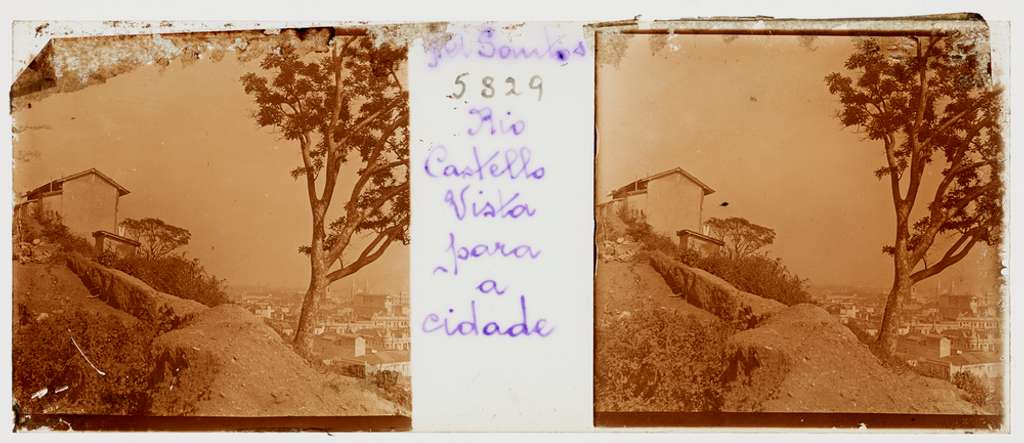 Santos
5829
Rio
Castello
Vista
para
a
cidade